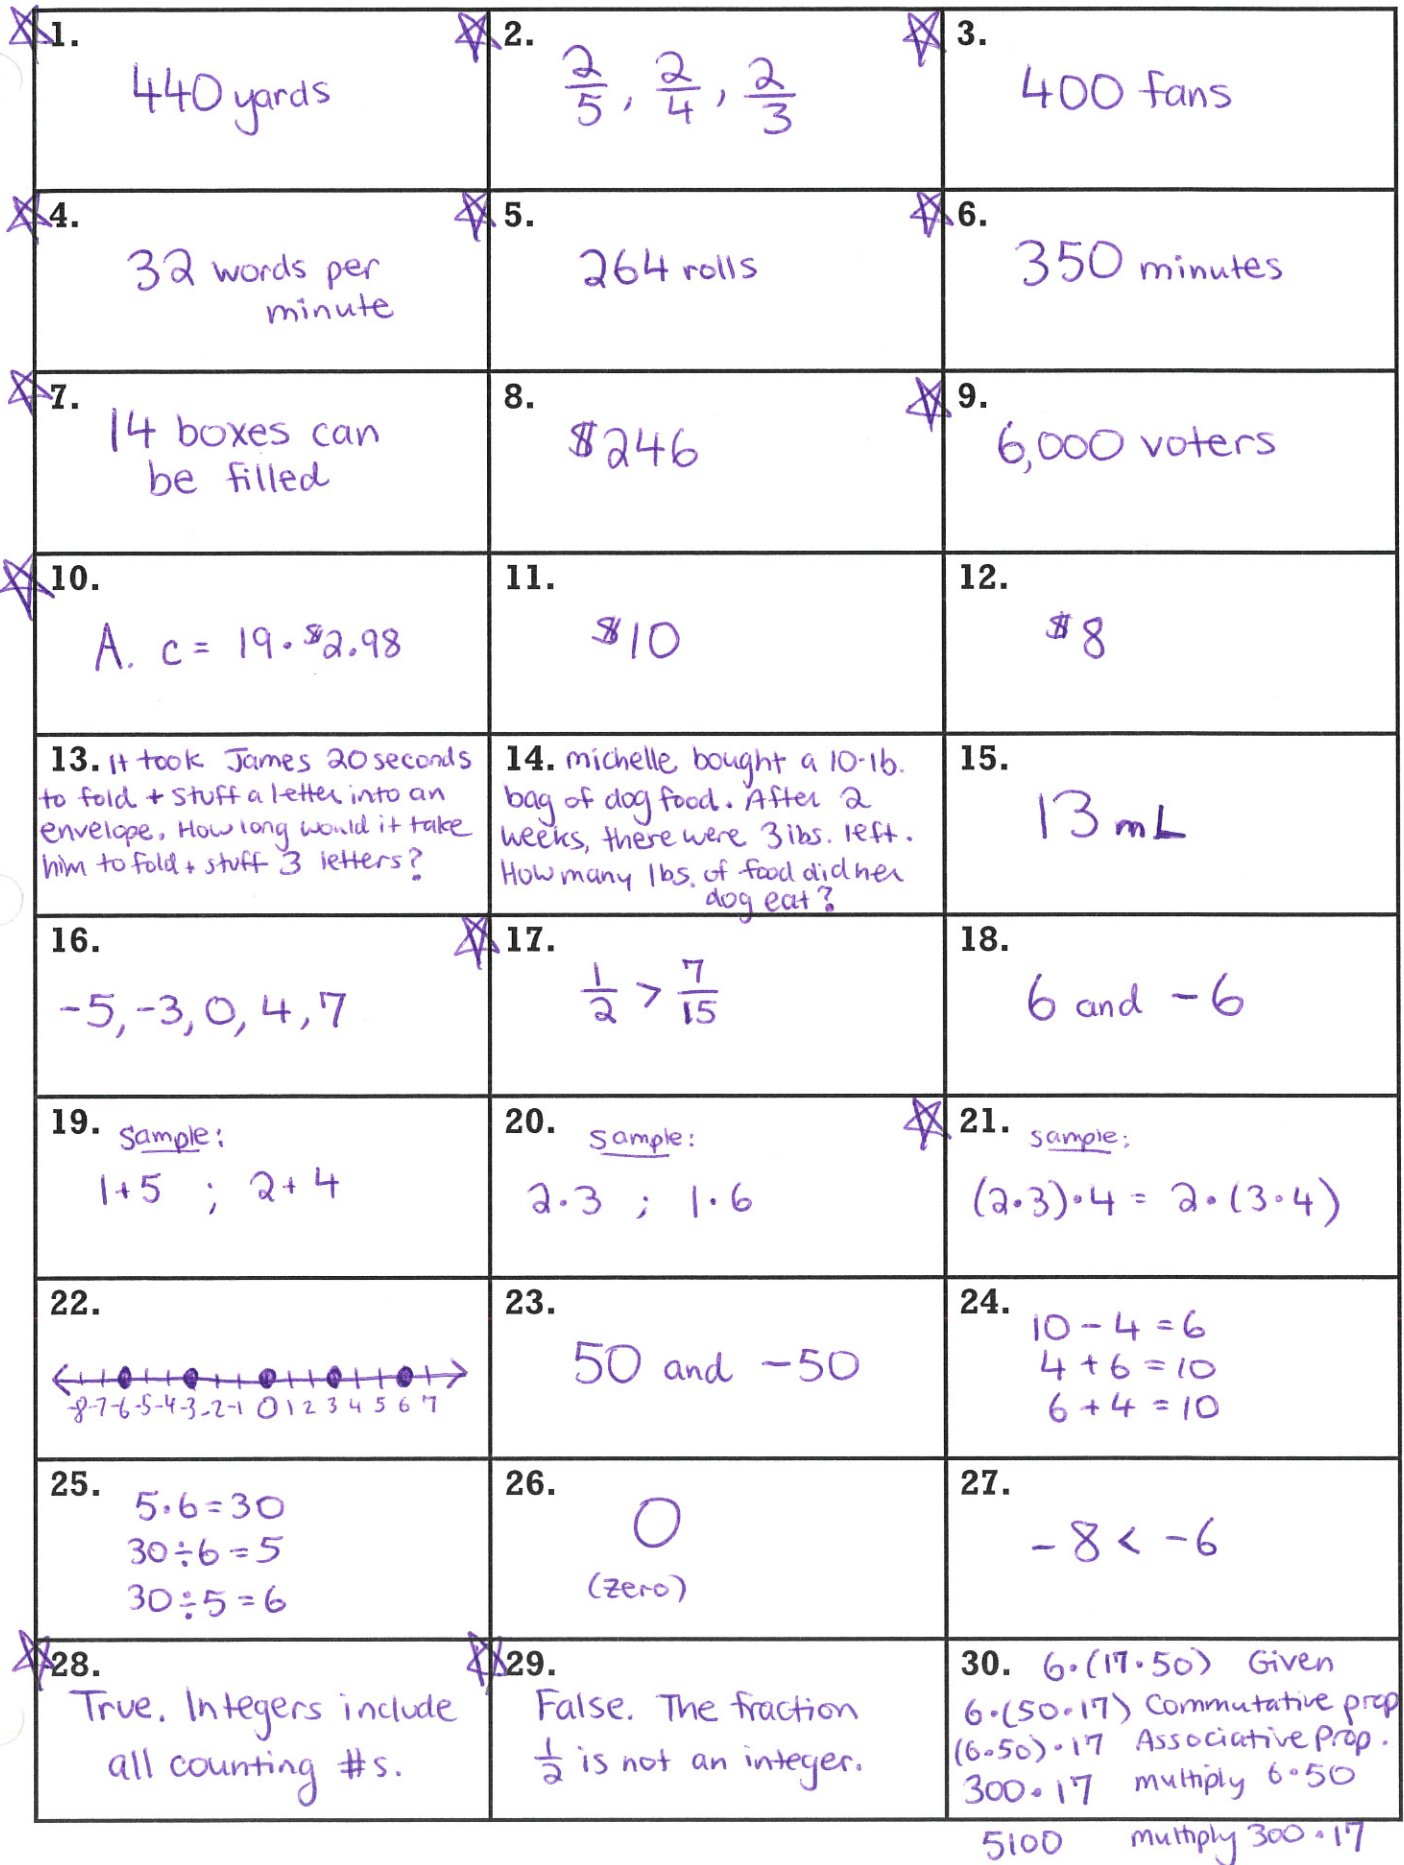 1.
440 yards
2.
2/5, 2/4, 2/3
3.
400 fans
4.
32 words per
minute
5.
264 rolls
6.
350 minutes
7.
14 boxes can
be filled
8.
$246
9.
6,000 voters
10.
A. c = 19 · $2.98
11.
$10
12.
$8
13. It took James 20 seconds
to fold + stuff a letter into an
envelope. How long would it take
him to fold + stuff 3 letters?
14. michelle bought a 10-lb.
bag of dog food. After 2
weeks, there were 3 lbs. left.
How many lbs. of food did her
dog eat?
15.
13 mL
16.
-5, -3, 0, 4, 7
17.
1/2 > 7/15
18.
6 and -6
19. Sample:
1+5 ; 2+4
20.
Sample:
2·3 ; 1·6
21.
Sample:
(2·3)·4 = 2·(3·4)
22.
-8 -7 -6 -5 -4 -3 -2 -1 0 1 2 3 4 5 6 7
23.
50 and -50
24.
10 - 4 = 6
4 + 6 = 10
6 + 4 = 10
25.
5·6 = 30
30÷6 = 5
30÷5 = 6
26.
0
(zero)
27.
-8 < -6
28.
True. Integers include
all counting #s.
29.
False. The fraction
1/2 is not an integer.
30. 6·(17·50) Given
6·(50·17) Commutative prop
(6·50)·17 Associative Prop.
300·17 multiply 6·50
5100 multiply 300·17